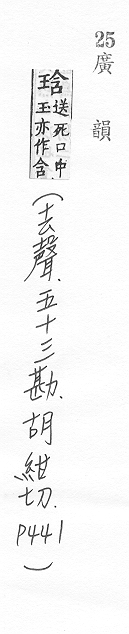 25廣韻
琀送死口中
玉亦作含
(去聲.五十三勘.胡紺切.P441)